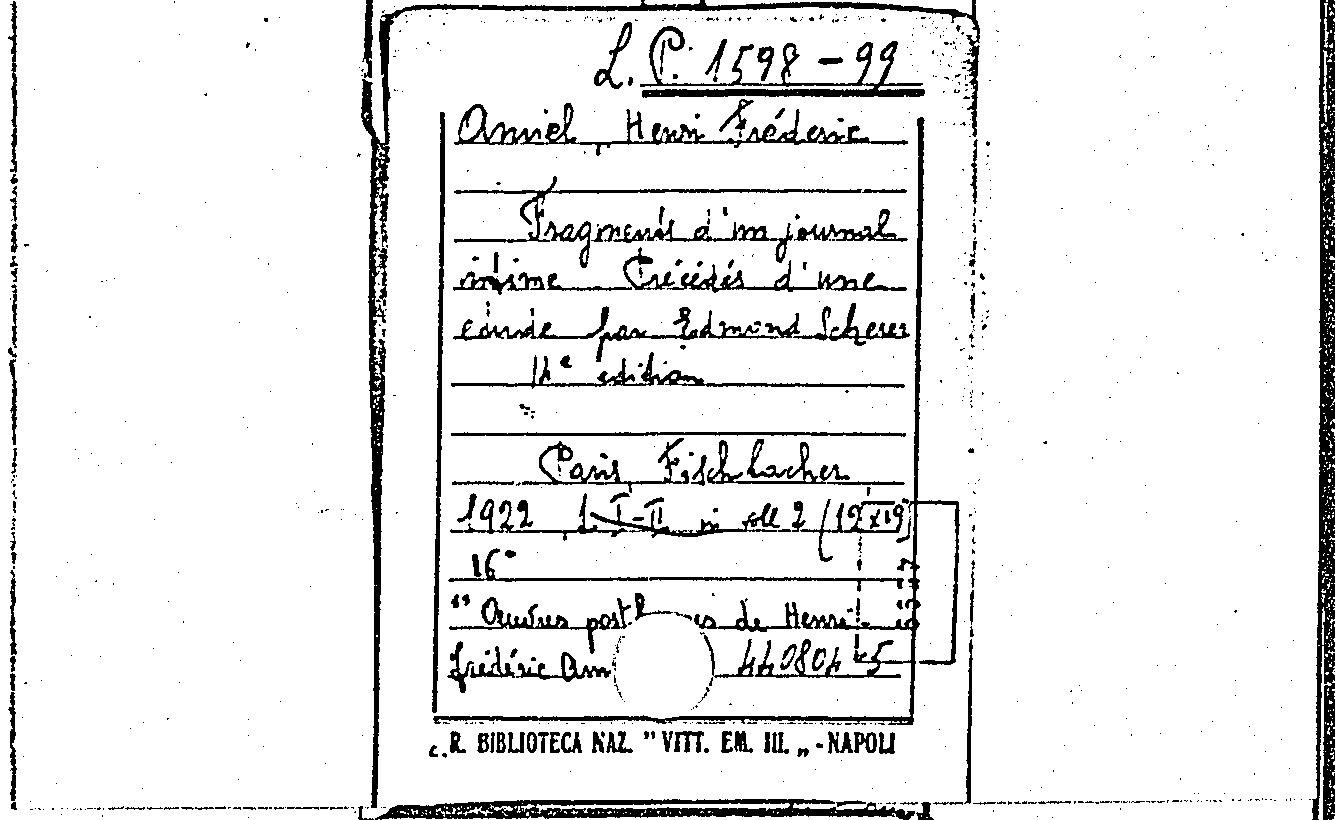 L. P. 1598 - 99
Amiel, Henri Frédéric
Fragments d'un journal
intime Précédés d'une
etude par Edmond Scherer
14e edition
Paris, Fischbacher
1922 I-II in voll 2 (12x19)
16°
" Œuvres de Henri-
frédéric 440804-5
R. BIBLIOTECA NAZ. " VITT. EM. III. „ - NAPOLI